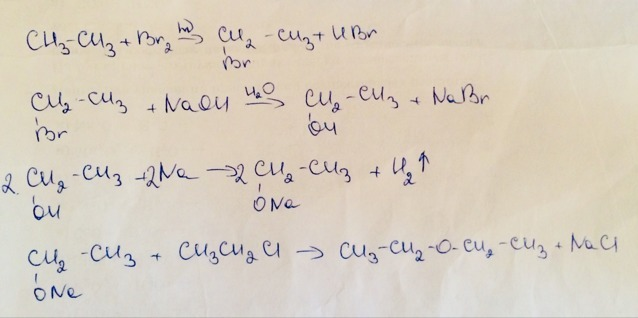 CH₃-CH₃ + Br₂ →hν CH₂-CH₃ + HBr
Br
CH₂-CH₃ + NaOH →H₂O CH₂-CH₃ + NaBr
Br OH
2. CH₂-CH₃ + 2Na → 2 CH₂-CH₃ + H₂↑
OH ONa
CH₂-CH₃ + CH₃CH₂Cl → CH₃-CH₂-O-CH₂-CH₃ + NaCl
ONa